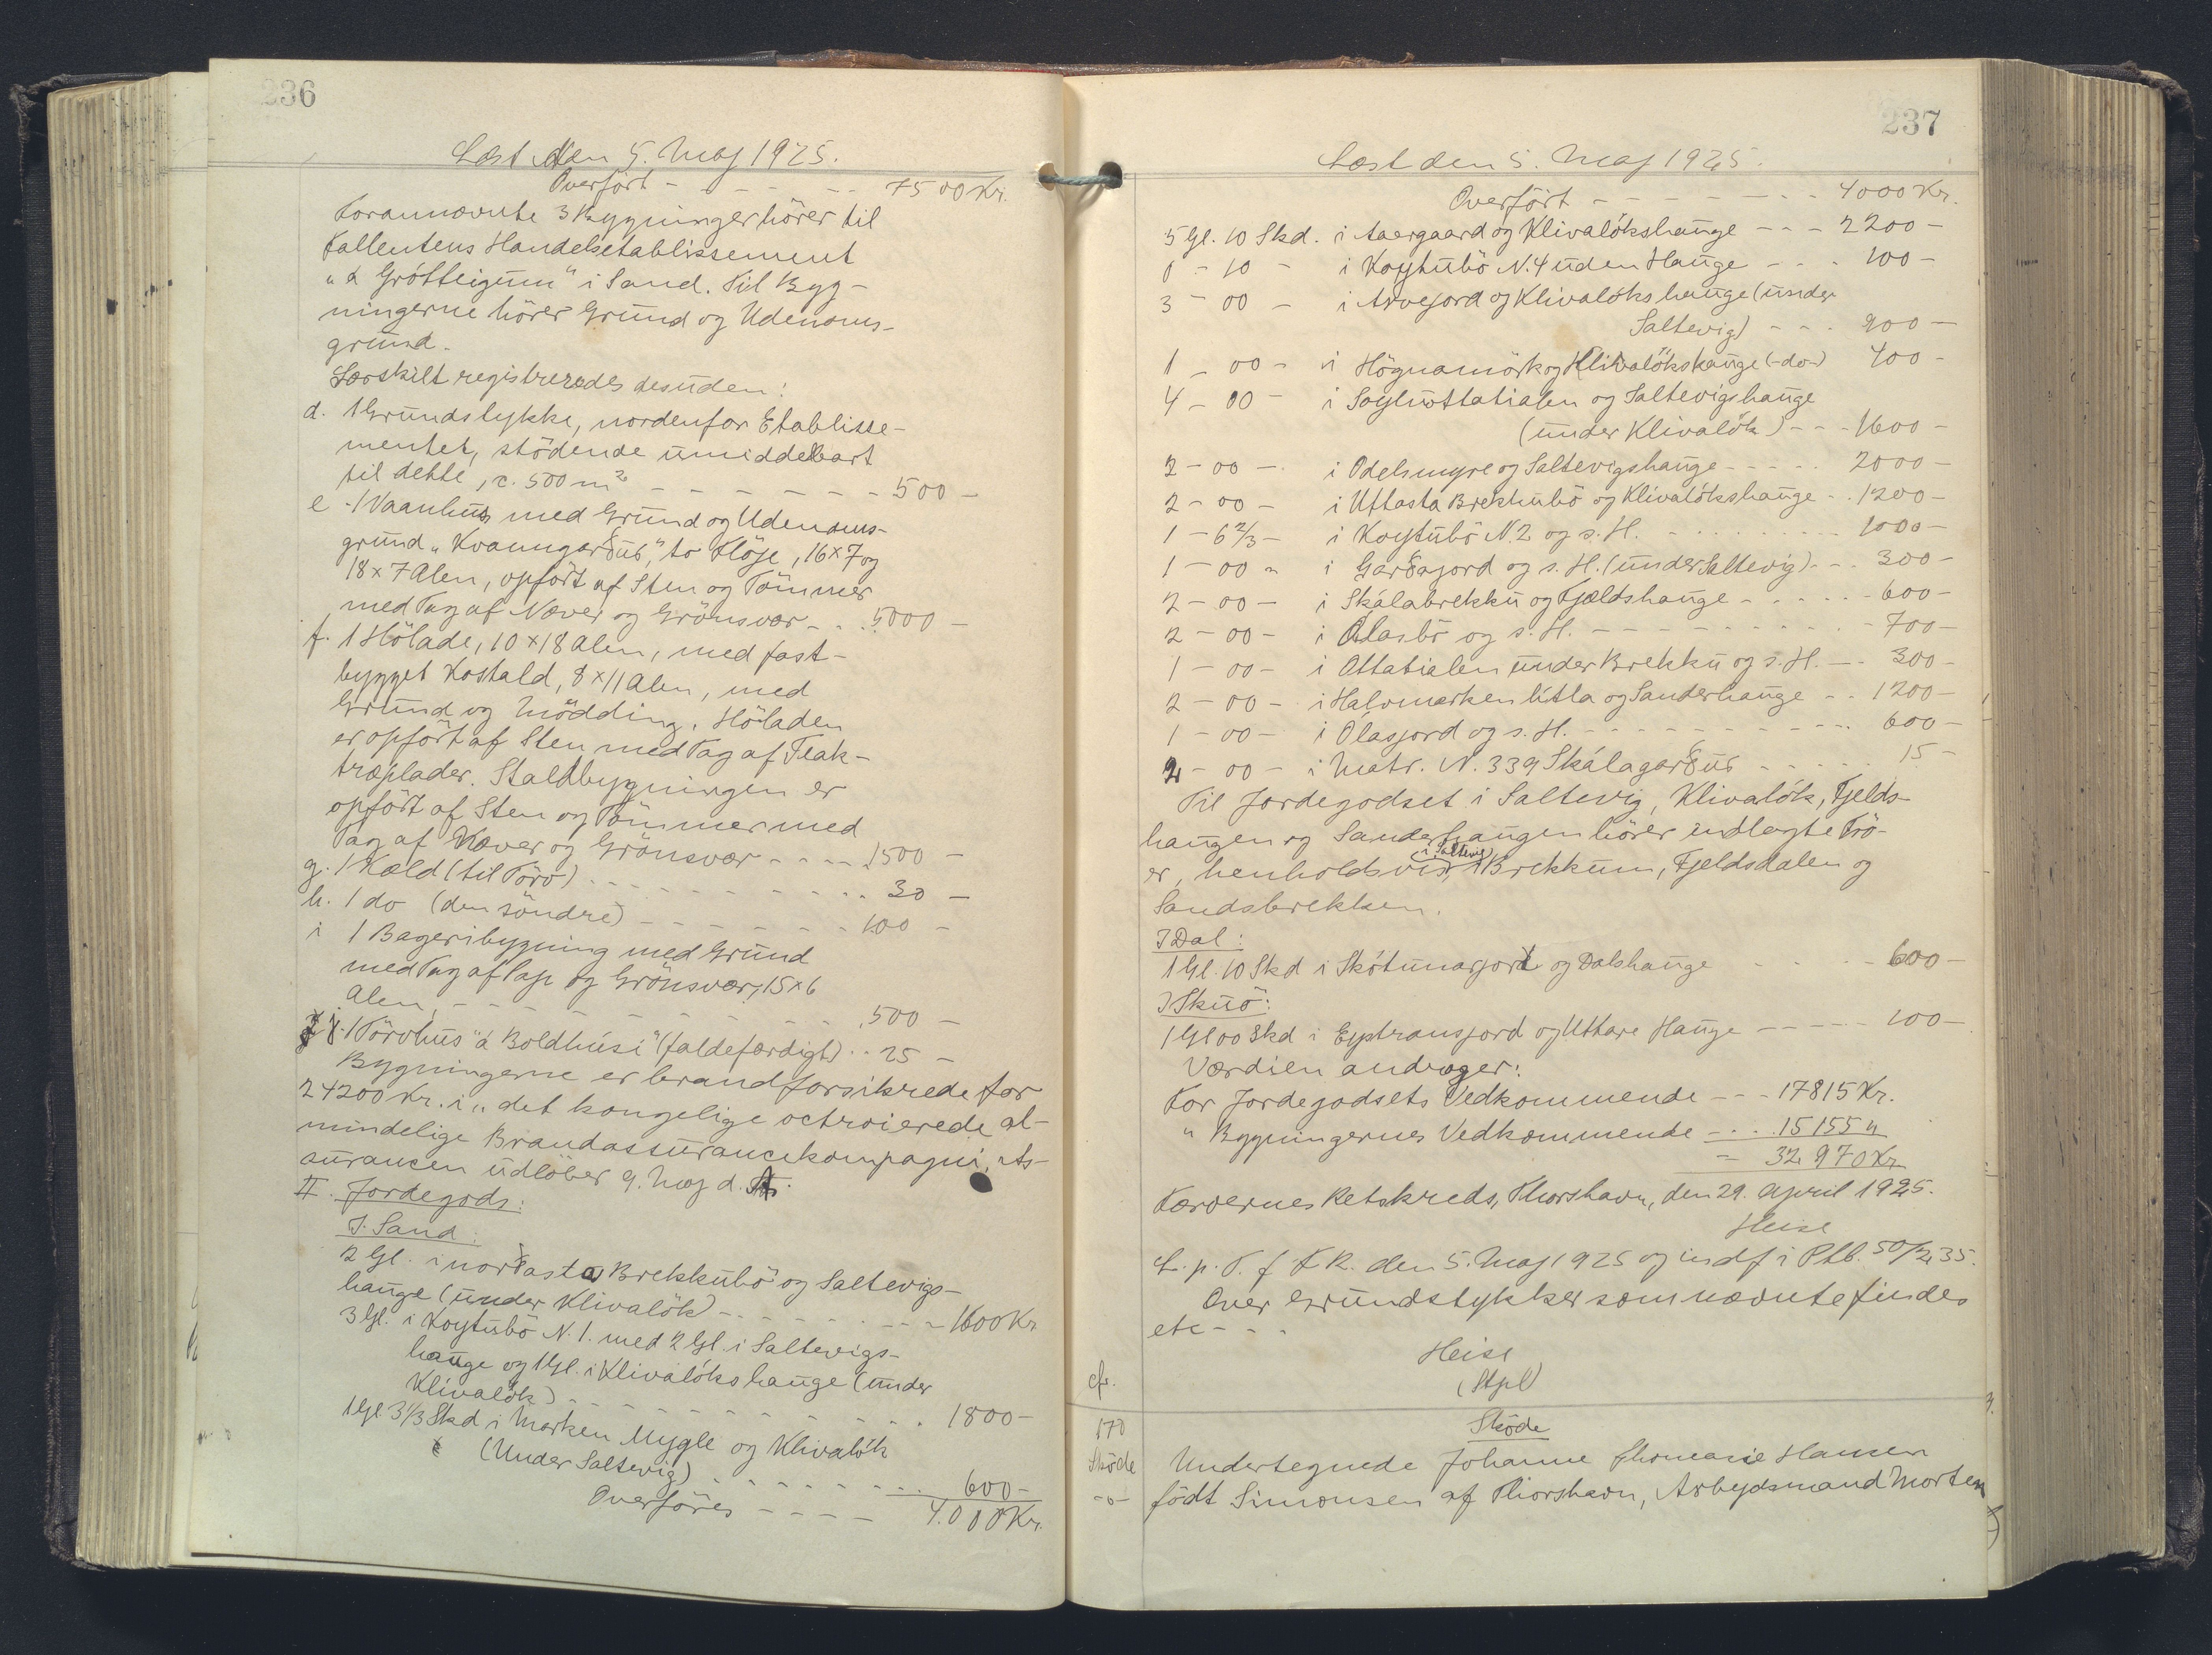 236
Læst den 5. Maj 1925.
Overført - - - - 7500 Kr.
Forannævnte 3 Bygninger hörer til
Fallentens Handelsetablissement
"á Gróthteigum" i Sand. Til Byg-
ningerne hörer Grund og Udenoms-
grund.
Særskilt registreredes desuden:
d. 1 Grundstykke, nordenfor Etablisse-
mentet, stödende umiddelbart
til dette, c. 500 m² - - - - - - - 500 -
e - 1 Vaanhus med Grund og Udenoms-
grund "Kvanngarðus," to Fløje, 16 x 7 og
18 x 7 Alen, opfört af Sten og Tömmer
med Tag af Næver og Grönsvær - - 5000 -
f. 1 Hölade, 10 x 18 Alen, med fast-
bygget Kostald, 8 x 11 Alen, med
Grund og Mödding. Höladen
er opfört af Sten med Tag af Flak-
træplader. Staldbygningen er
opfört af Sten og Tömmer med
Tag af Næver og Grönsvær - - - - 1500 -
g. 1 Kæld (til Törv) - - - - - - - 30 -
h. 1 do (den söndre) - - - - - - - 100 -
i 1 Bageribygning med Grund
med Tag af Pap og Grönsvær, 15 x 6
Alen, - - - - - - - - - 500 -
j. 1 Törvhus "á Boldhúsi" (faldefærdigt) - - 25 -
Bygningerne er brandforsikrede for
24200 Kr. i "det kongelige octroierede al-
mindelige Brandassurancekompagni". As-
surancen udlöber 9. Maj d. A.
II. Jordegods:
I. Sand:
2 Gl. i norðasta Brekkubö og Saltevigs-
hauge (under Klivalök) - - - - - - 1600 Kr
3 Gl. i Koytubö N. 1. med 2 Gl. i Saltevigs-
hauge og 1 Gl. i Klivalóks hauge (under
Klivalök) - - - - - - - - - 1800 -
1 Gl. 3 1/3 Skd i Marken Mygle og Klivalök
(Under Saltevig) - - - - - - - 600 -
Overföres - - - - 4.000 Kr.
237
Læst den 5. Maj 1925.
Overfört - - - - - - - 4000 Kr.
5 Gl. 10 Skd. i Aaergaard og Klivalókshauge - - - 2200 -
0 - 10 - i Koytubö N. 4 uden Hauge - - - 100 -
3 - 00 - i Arvejord og Klivalóks hauge (under
Saltevig) - - - 900 -
1 - 00 - i Högnamörk og Klivalökshauge (-do-) 400 -
4 - 00 - i Soyluottatialen og Saltevigshauge
(under Klivalök) - - - 1600 -
2 - 00 - i Odelsmyre og Saltevigshauge - - - - - 2000 -
2 - 00 - i Uttasta Brekkubö og Klivalókshauge - - 1200 -
1 - 6 2/3 - i Koytubö N. 2 og s. H. - - - - - - 1000 -
1 - 00 - i Garðajord og s. H. (under Saltevig) - - - 300 -
2 - 00 - i Skálabrekku og Fjeldshauge - - - - - 600 -
2 - 00 - i Ólasbö og s. H. - - - - - - - - - 700 -
1 - 00 - i Attatialen under Brekku og s. H. - - 300 -
2 - 00 - i Halvmarken litla og Sanderhauge - - 1200 -
1 - 00 - i Ólasjord og s. H. - - - - - - - - 600 -
2 - 00 - i Matr. N. 339 Skálagarðus - - - - - 15 -
Til Jordegodset i Saltevig, Klivalók, Fjelds-
haugen og Sanderhaugen hörer indlagte Trö-
er, henholdsvis i Saltevig, Brekkum, Fjeldsdalen og
Sandsbrekken.
I Dal:
1 Gl. 10 Skd i Skótunarjord og Dalshauge - - - - - 600 -
I Skuö:
1 Gl 00 Skd i Eystransjord og Uttare Hauge - - - - - 100 -
Værdien andrager:
For Jordegodsets Vedkommende - - - 17815 Kr.
" Bygningernes Vedkommende - - - 15155 "
= 32 970 Kr
Færøernes Retskreds, Thorshavn, den 29. April 1925.
Heise
L. p. T. f. F. R. den 5. Maj 1925 og indf i Ptb. 50/2, 35.
Over Grundstykker som nævnte findes
etc - - -
Heise
(Stpl)
cfr.
170
Sköde
-o-
Sköde
Undertegnede Johanne Thomasie Hansen
födt Simonsen af Thorshavn, Arbejdsmand Morten